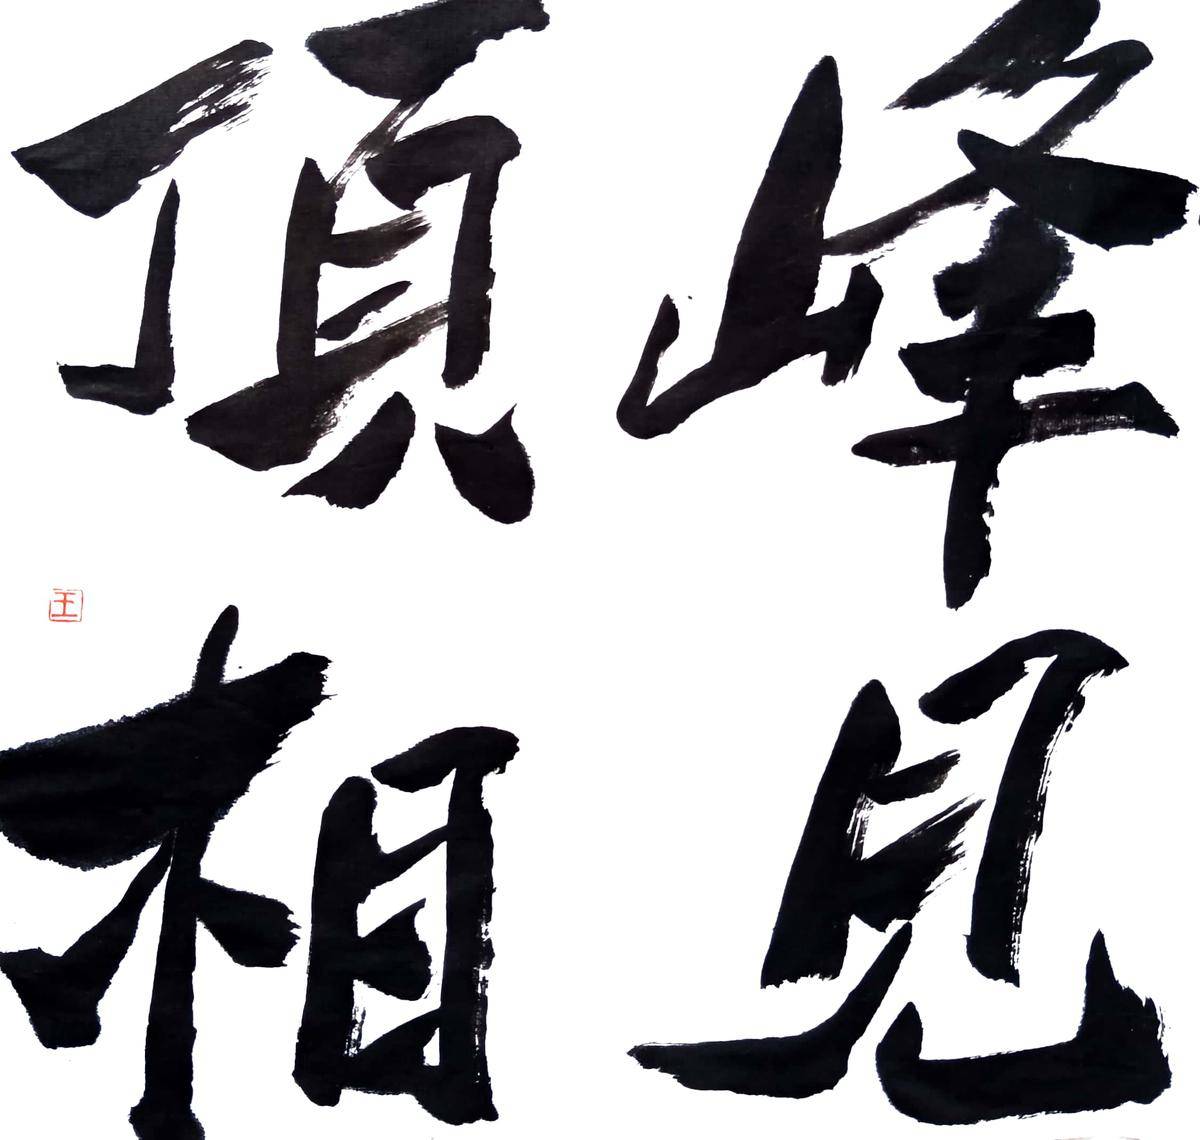 頂峰
王
相見